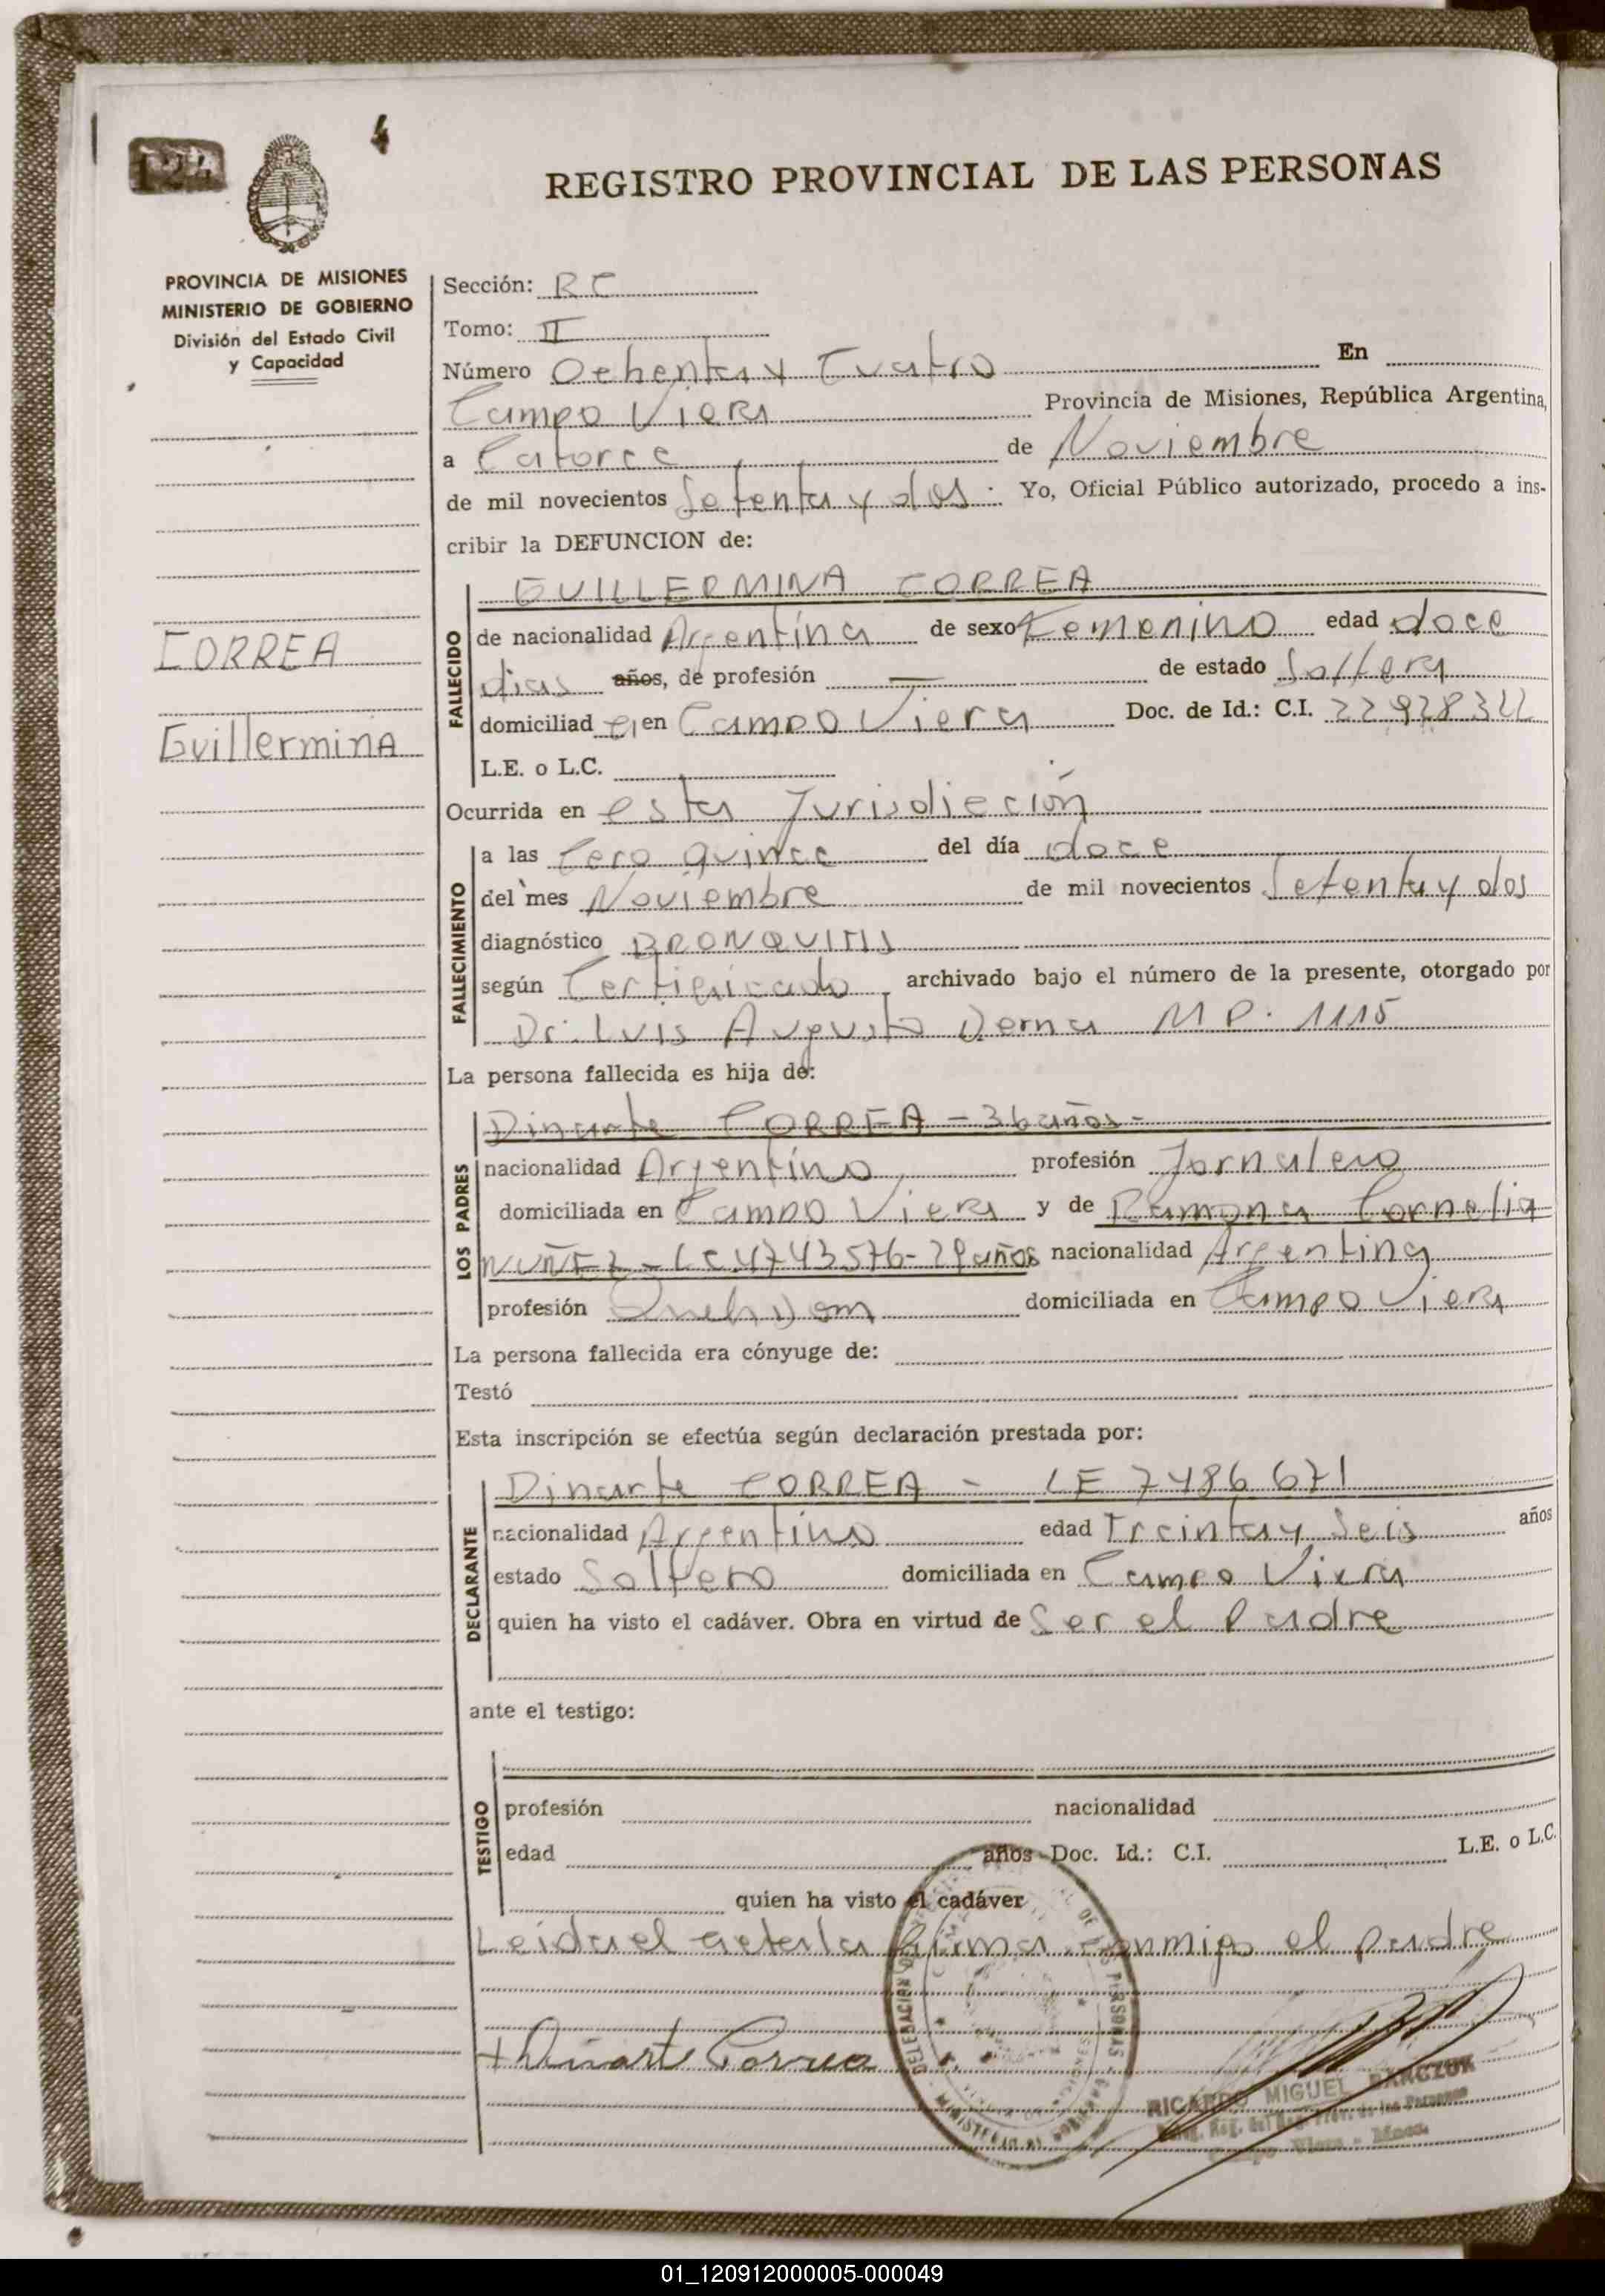 REGISTRO PROVINCIAL DE LAS PERSONAS
PROVINCIA DE MISIONES
MINISTERIO DE GOBIERNO
División del Estado Civil
y Capacidad
CORREA
Guillermina
Sección: RC
Tomo: II
Número Ochenta y Cuatro En
Campo Viera Provincia de Misiones, República Argentina,
a Catorce de Noviembre
de mil novecientos Setenta y dos. Yo, Oficial Público autorizado, procedo a ins-
cribir la DEFUNCION de:
GUILLERMINA CORREA
FALLECIDO
de nacionalidad Argentina de sexo Femenino edad doce
dias años, de profesión — de estado Soltera
domiciliad a en Campo Viera Doc. de Id.: C.I.
L.E. o L.C.
Ocurrida en esta Jurisdicción
FALLECIMIENTO
a las Cero quince del día doce
del mes Noviembre de mil novecientos Setenta y dos
diagnóstico BRONQUITIS
según Certificado archivado bajo el número de la presente, otorgado por
Dr. Luis Augusto Derna M P. 1115
La persona fallecida es hija de:
LOS PADRES
Dinarte CORREA - 36 años -
nacionalidad Argentino profesión Jornalero
domiciliada en Campo Viera y de Ramona Cornelia
NUÑEZ - LC 4743576 - 29 años nacionalidad Argentina
profesión domiciliada en Campo Viera
La persona fallecida era cónyuge de:
Testó
Esta inscripción se efectúa según declaración prestada por:
DECLARANTE
Dinarte CORREA - LE 7486671
nacionalidad Argentino edad Treinta y Seis años
estado Soltero domiciliada en Campo Viera
quien ha visto el cadáver. Obra en virtud de Ser el Padre
ante el testigo:
TESTIGO
profesión nacionalidad
edad años Doc. Id.: C.I. L.E. o L.C.
quien ha visto el cadáver
Leida el acta la firma conmigo el padre
Dinarte Correa
RICARDO MIGUEL BARCZUK
01_120912000005-000049